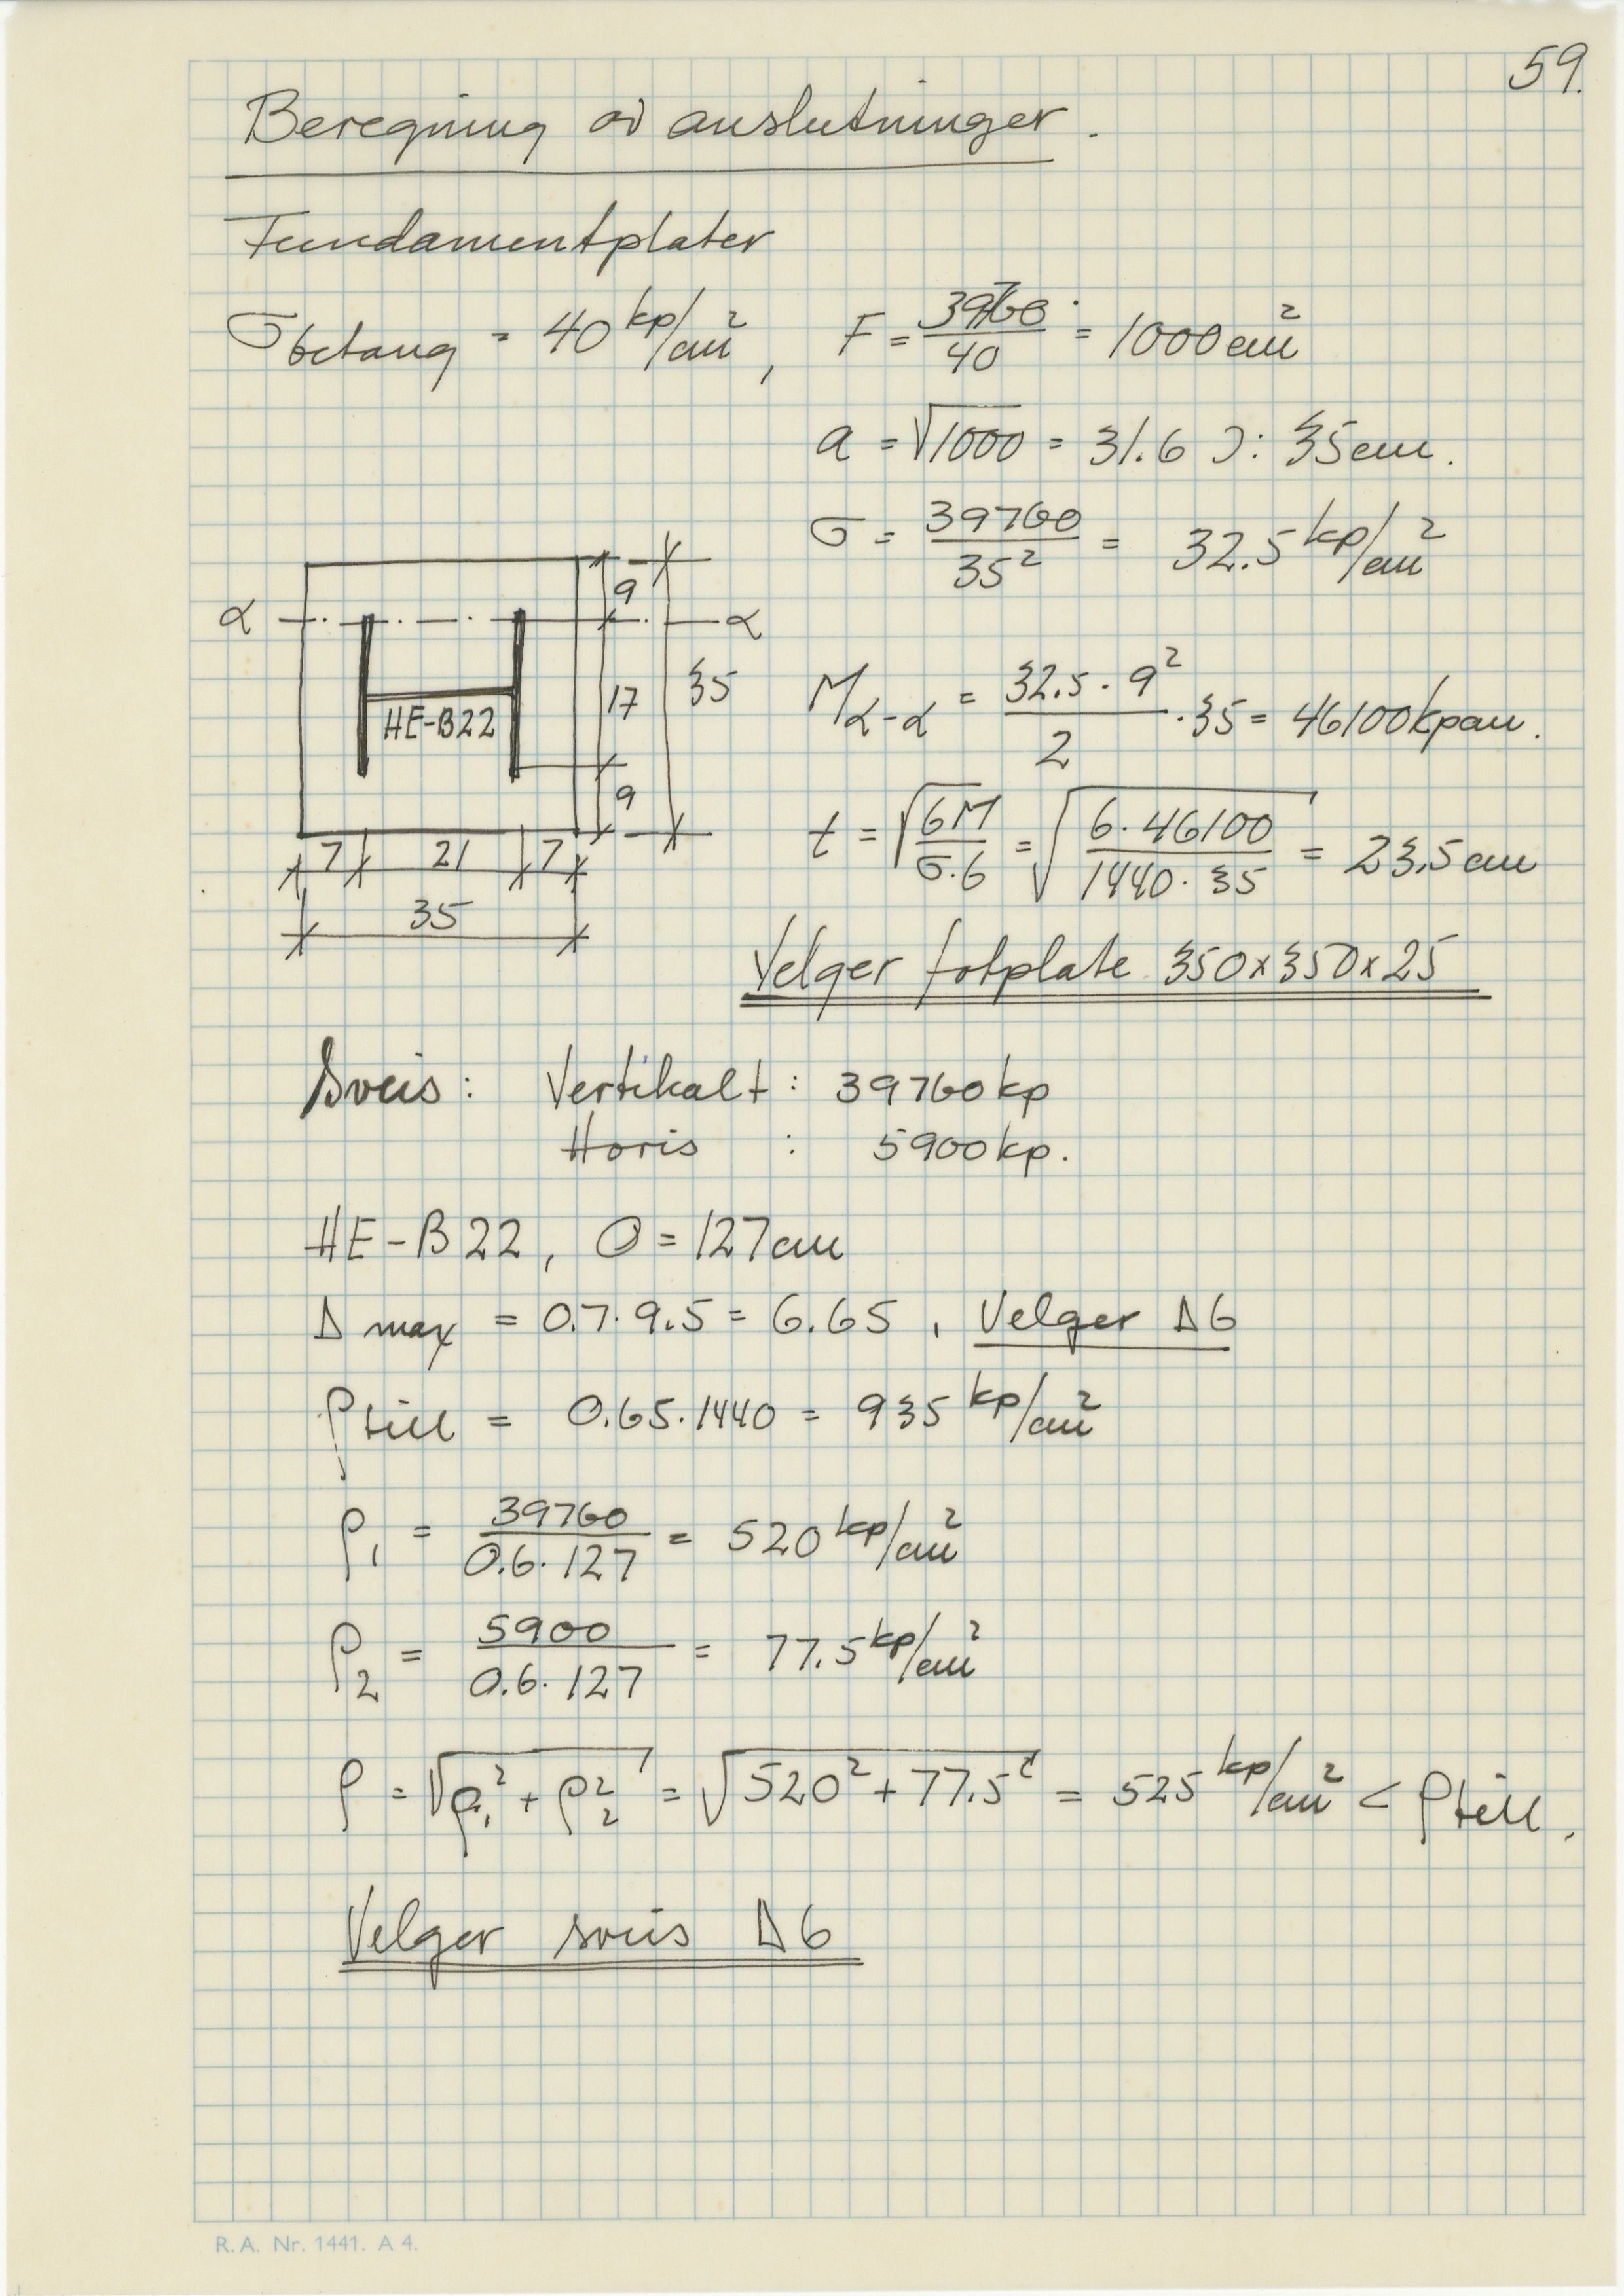 59.
Beregning av anslutninger.
Fundamentplater
σbetong = 40 kp/cm², F = 39760/40 = 1000 cm²
a = √1000 = 31.6 ɔ: 35 cm.
σ = 39760/35² = 32.5 kp/cm²
9
α α
17 35
HE-B22
9
7 21 7
35
Mα-α = 32.5 · 9²/2 · 35 = 46100 kpcm.
t = √(6M/σ.b) = √(6·46100/1440·35) = 23,5 cm
Velger fotplate 350x350x25
Sveis: Vertikalt: 39760 kp
Horis : 5900 kp.
HE-B22, O = 127 cm
Δ max = 0.7·9.5 = 6.65, Velger Δ6
ρtill = 0.65·1440 = 935 kp/cm²
ρ1 = 39760/0.6·127 = 520 kp/cm²
ρ2 = 5900/0.6·127 = 77.5 kp/cm²
ρ = √(ρ1² + ρ2²) = √(520² + 77.5²) = 525 kp/cm² < ρtill.
Velger sveis Δ6
R.A. Nr. 1441. A 4.